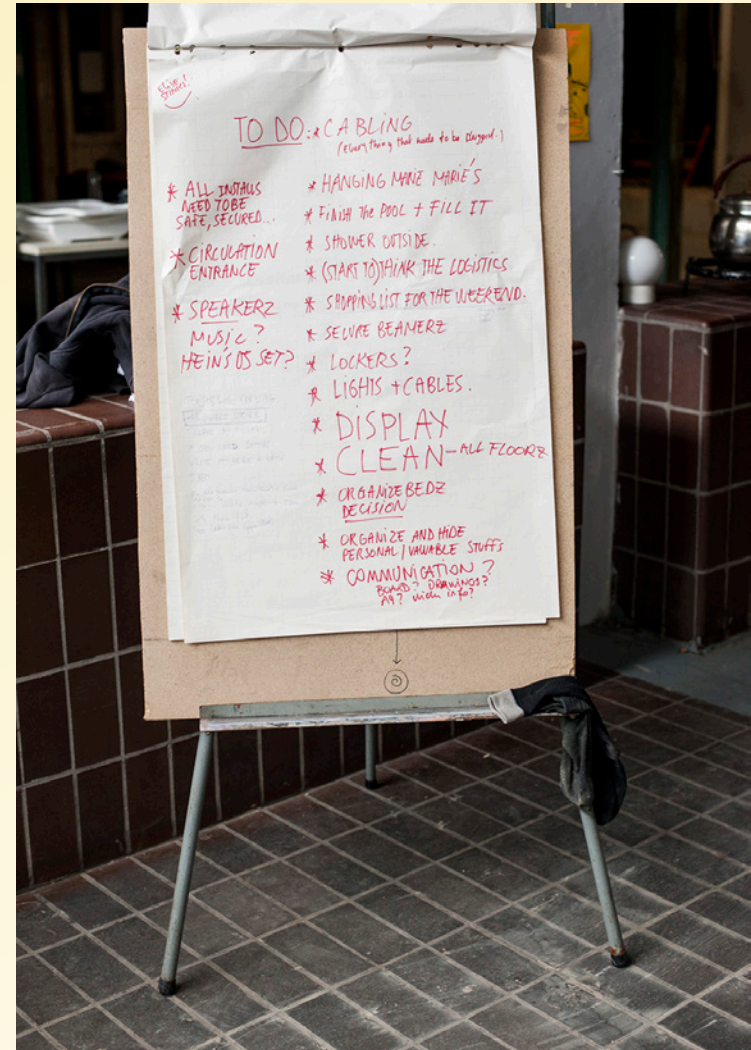 TO DO: * CABLING
(everything that needs to be
* ALL INSTALLS
NEED TO BE
SAFE, SECURED...
* CIRCULATION
ENTRANCE
* SPEAKERZ
MUSIC?
HEIN'S DJ SET?
* HANGING MANE MARIE'S
* FINISH the POOL + FILL IT
* SHOWER OUTSIDE.
* (START TO) THINK THE LOGISTICS
* SHOPPING LIST FOR THE WEEKEND.
* SECURE BEAMERZ
* LOCKERS?
* LIGHTS + CABLES.
* DISPLAY
* CLEAN - ALL FLOORZ
* ORGANIZE BEDZ
DECISION
* ORGANIZE AND HIDE
PERSONAL / VALUABLE STUFFS
* COMMUNICATION?
BOARD? DRAWINGS?
info?